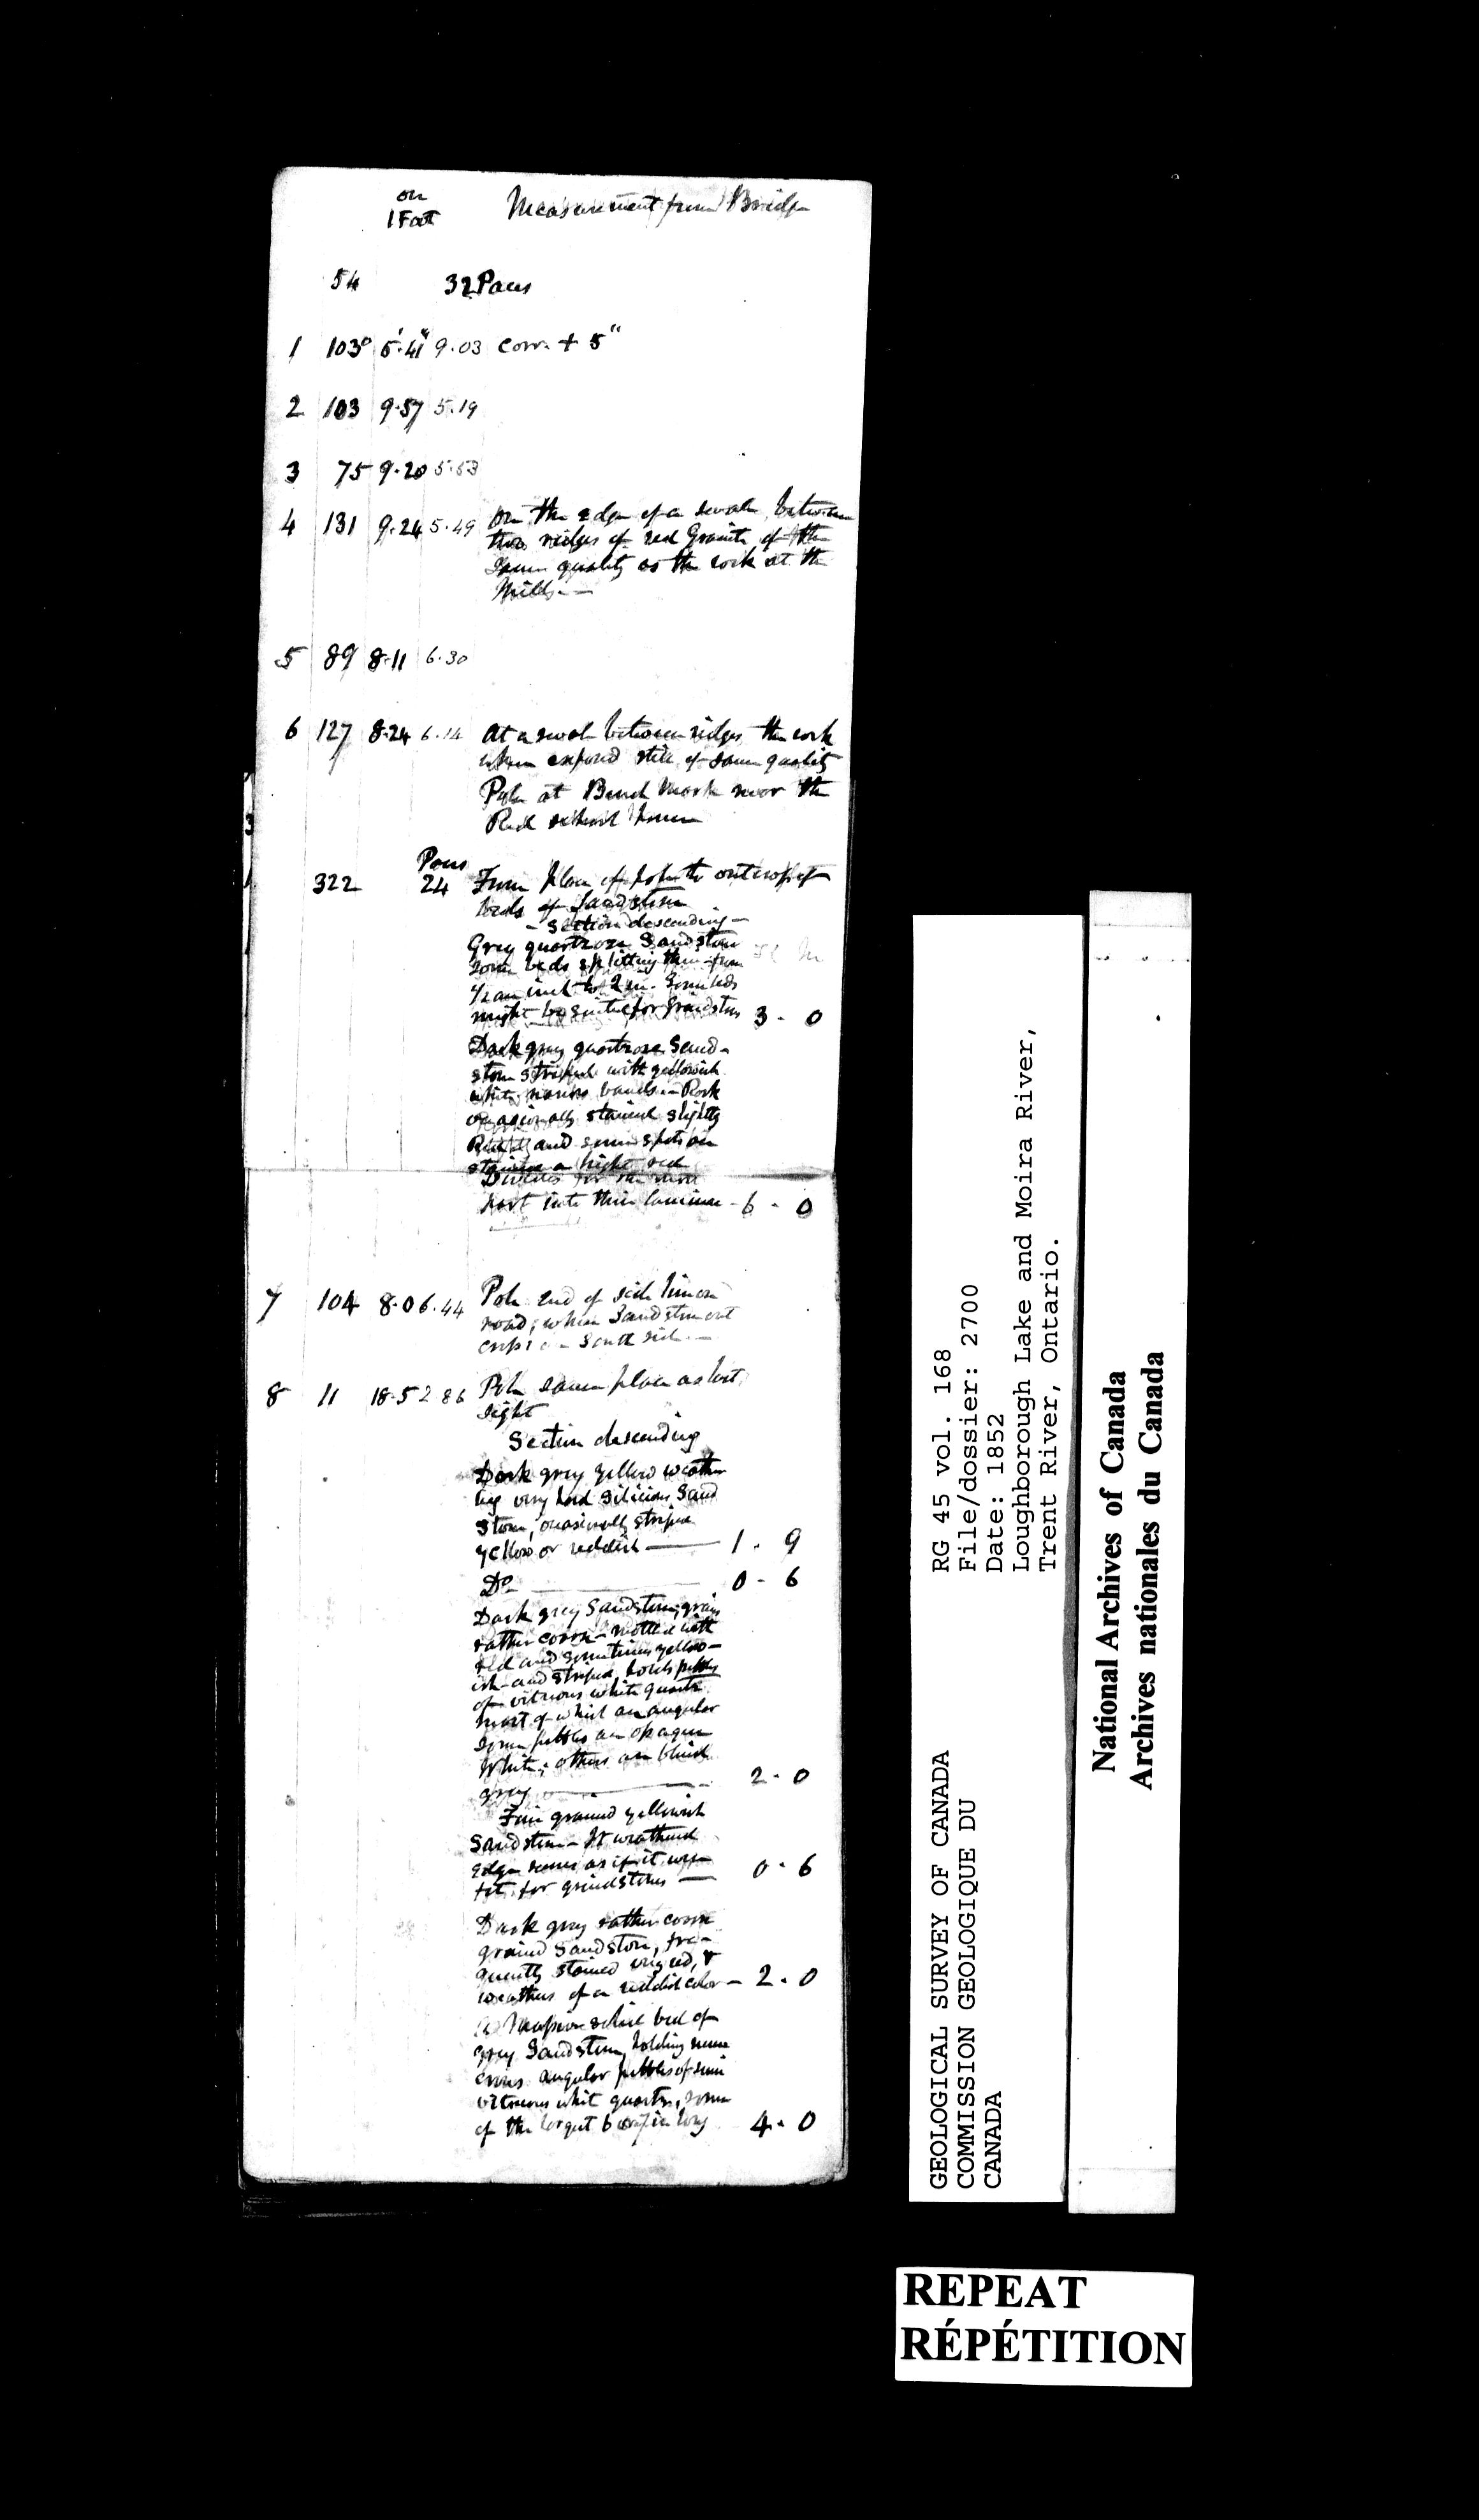 on
1 Foot Measurement from Bridge
54 32 Paces
1 103° 5'.41" 9.03 Corr. + 5"
2 103 9.57 5.19
3 75 9.20 5.53
4 131 9.24 5.49 On the edge of a swale between
two ridges of red Granite of the
same quality as the rock at the
Mills.—
5 89 8.11 6.30
6 127 8.24 6.14 At a swale between ridges the rock
when exposed still of same quality
Pole at Bench Mark near the
Red school house
Paces
322 24 From place of pole to outcrop of
beds of sandstone
- Section descending -
Grey quartzose Sandstone
some beds splitting thin from
1/2 an inch to 2 in. Some beds
might be suited for Grindstones 3 . 0
Dark grey quartzose Sand-
stone striped with yellowish
white narrow bands - Rock
occasionally stained slightly
and some spots are
a bright red
Divides for the most
part into thin laminae - 6 . 0
7 104 8.0 6.44 Pole end of side line on
road, where Sandstone out
crops on South side.—
8 11 18.5 2 86 Pole same place as last
sight
Section descending
Dark grey yellow weather
ing very hard silicious Sand
stone, occasionally striped
yellow or reddish —— 1 . 9
Do —— 0 - 6
Dark grey Sandstone, grain
rather coarse - mottled with
red and sometimes yellow-
ish and striped, holds pebbles
of vitreous white quartz
most of which are angular
Some pebbles are opaque
White; others are bluish
grey —— 2 . 0
Fine grained yellowish
Sandstone - It weathered
edge seems as if it were
fit for grindstones — 0 . 6
Dark grey rather coarse
grained Sandstone, fre-
quently stained red, &
weathers of a reddish color - 2 . 0
A massive solid bed of
grey Sandstone, holding num
erous angular pebbles of semi
vitreous white quartz, some
of the largest 6 or 7 in long 4 . 0
RG 45 vol. 168
File/dossier: 2700
Date: 1852
Loughborough Lake and Moira River,
Trent River, Ontario.
GEOLOGICAL SURVEY OF CANADA
COMMISSION GEOLOGIQUE DU
CANADA
National Archives of Canada
Archives nationales du Canada
REPEAT
RÉPÉTITION